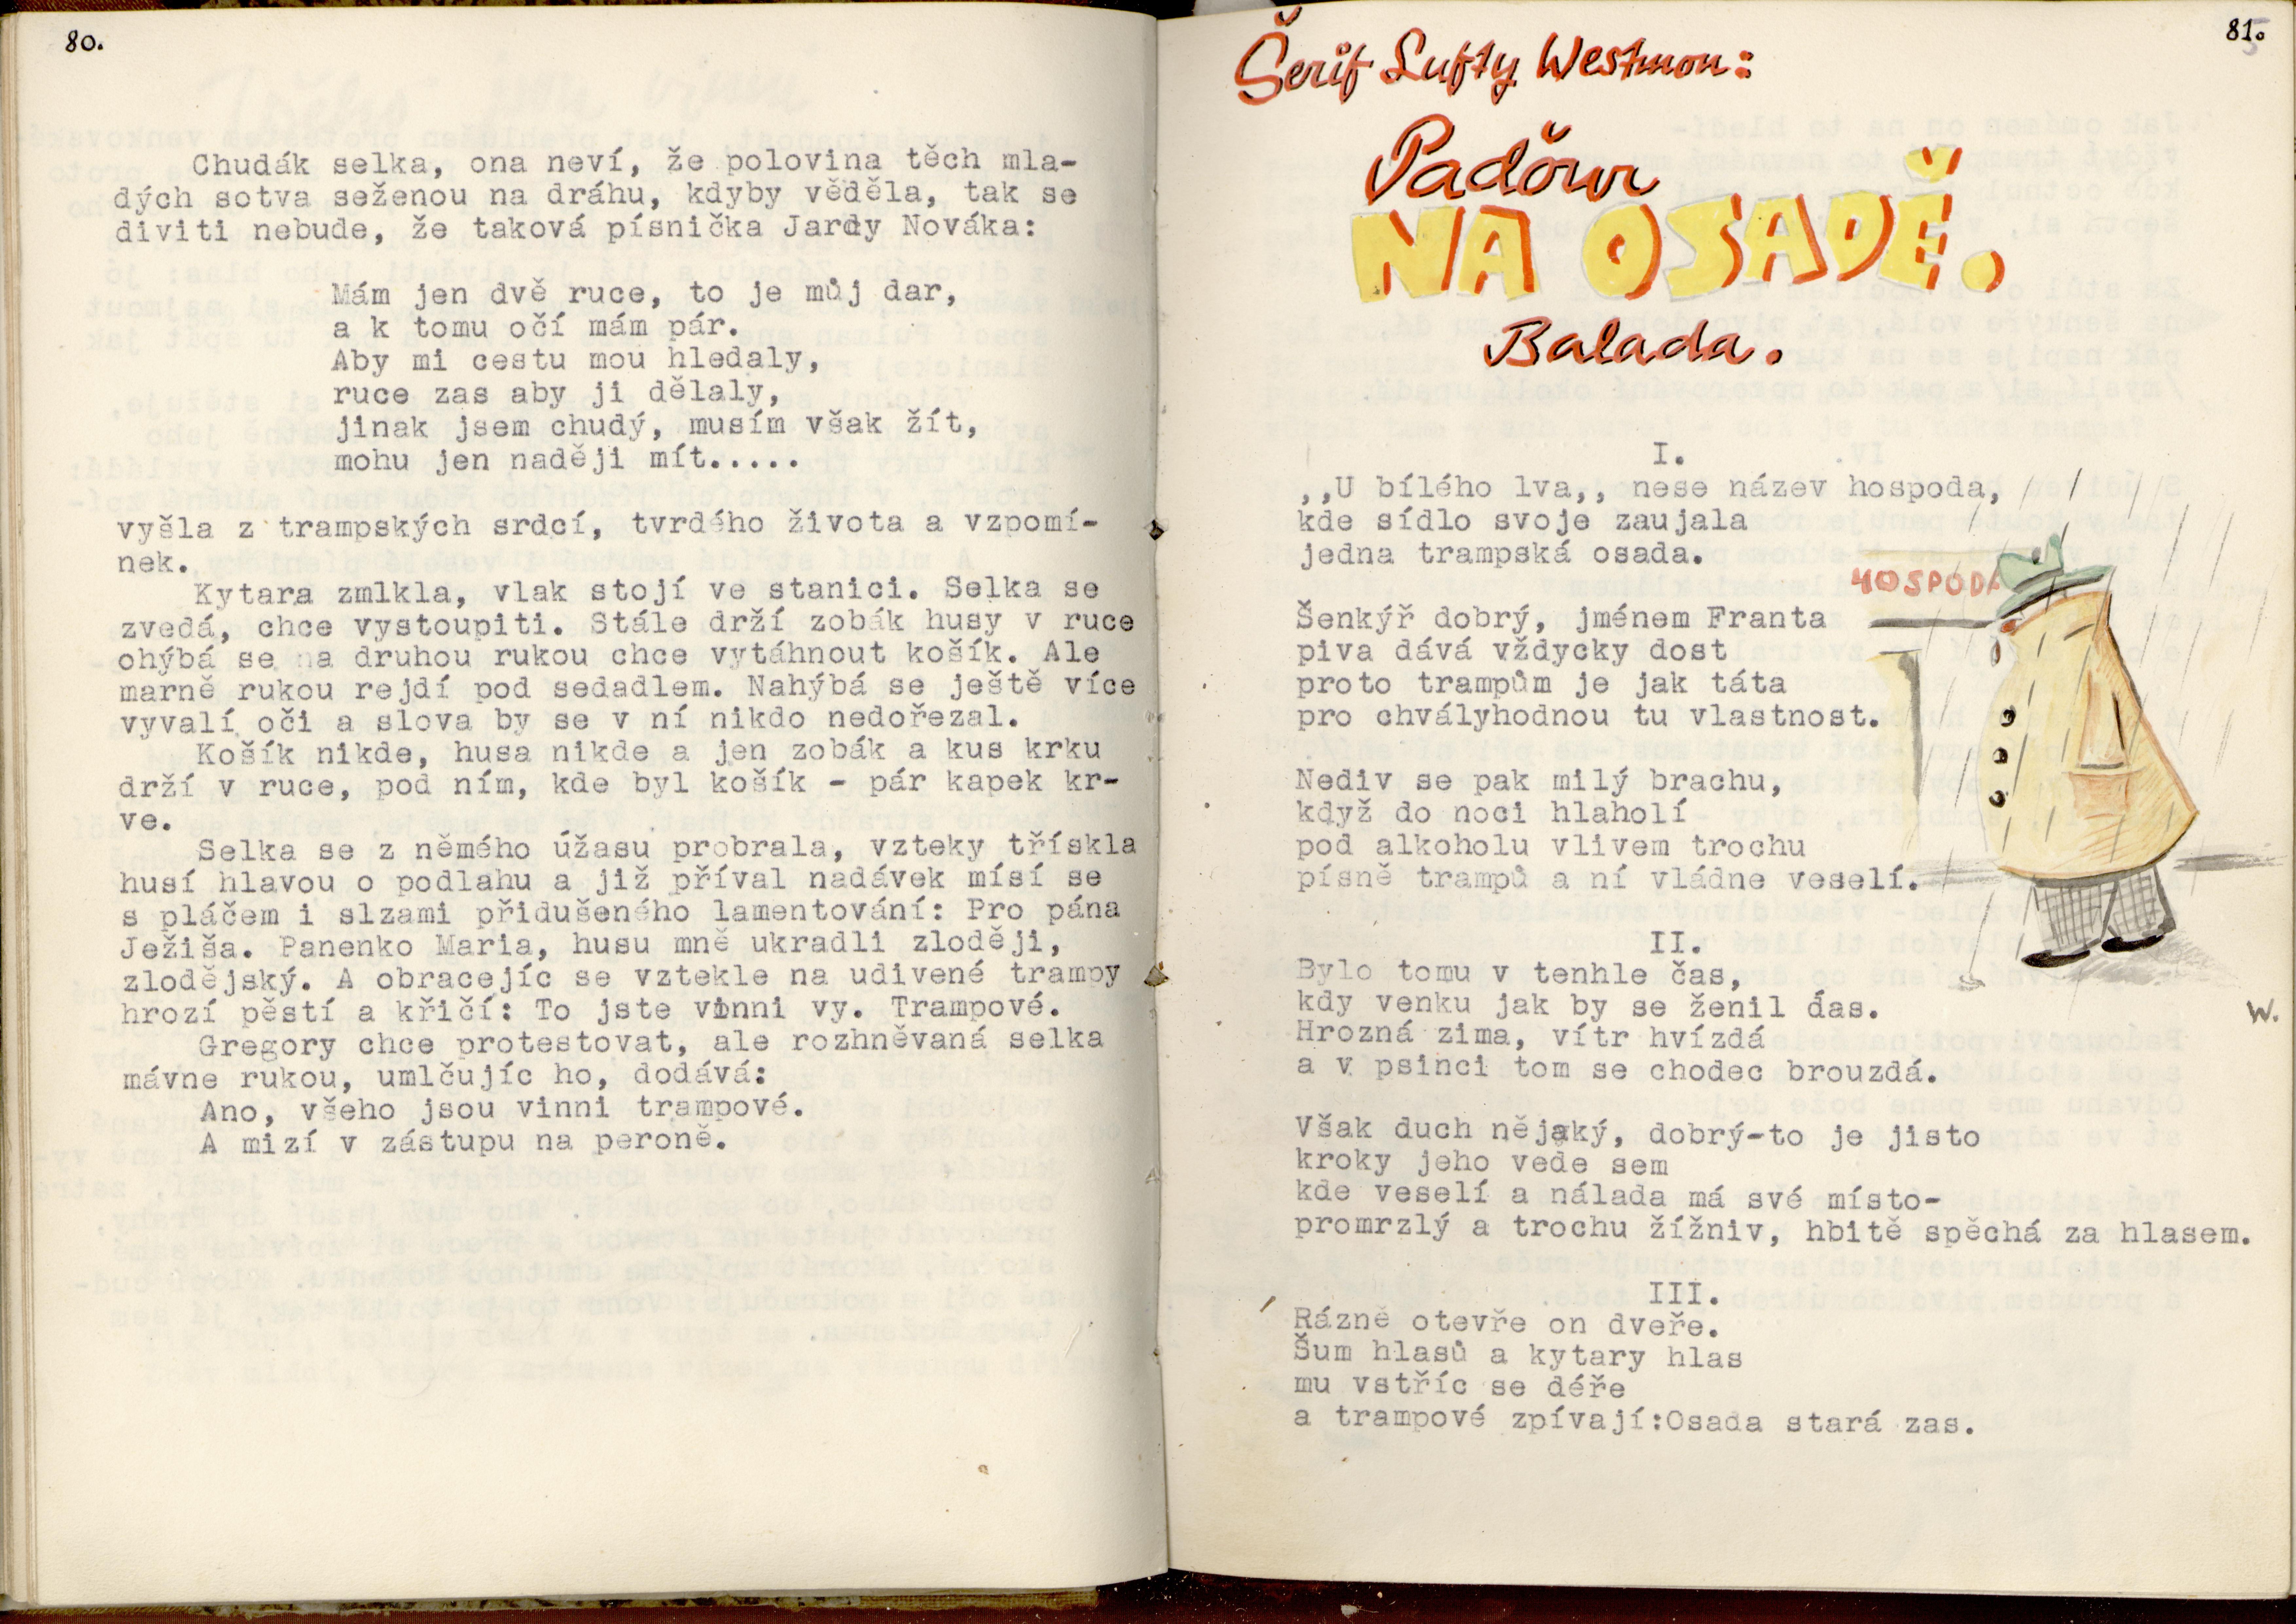 80.
Chudák selka, ona neví, že polovina těch mla-
dých sotva seženou na dráhu, kdyby věděla, tak se
diviti nebude, že taková písnička Jardy Nováka:
Mám jen dvě ruce, to je můj dar,
a k tomu očí mám pár.
Aby mi cestu mou hledaly,
ruce zas aby ji dělaly,
jinak jsem chudý, musím však žít,
mohu jen naději mít.....
vyšla z trampských srdcí, tvrdého života a vzpomí-
nek.
Kytara zmlkla, vlak stojí ve stanici. Selka se
zvedá, chce vystoupiti. Stále drží zobák husy v ruce
ohýbá se na druhou rukou chce vytáhnout košík. Ale
marně rukou rejdí pod sedadlem. Nahýbá se ještě více
vyvalí oči a slova by se v ní nikdo nedořezal.
Košík nikde, husa nikde a jen zobák a kus krku
drží v ruce, pod ním, kde byl košík - pár kapek kr-
ve.
Selka se z němého úžasu probrala, vzteky třískla
husí hlavou o podlahu a již příval nadávek mísí se
s pláčem i slzami přidušeného lamentování: Pro pána
Ježiša. Panenko Maria, husu mně ukradli zloději,
zlodějský. A obracejíc se vztekle na udivené trampy
hrozí pěstí a křičí: To jste vinni vy. Trampové.
Gregory chce protestovat, ale rozhněvaná selka
mávne rukou, umlčujíc ho, dodává:
Ano, všeho jsou vinni trampové.
A mizí v zástupu na peroně.
81.
Šerif Lufty Westmon:
Paďour
NA OSADĚ.
Balada.
I.
,,U bílého lva,, nese název hospoda,
kde sídlo svoje zaujala
jedna trampská osada.
HOSPODA
Šenkýř dobrý, jménem Franta
piva dává vždycky dost
proto trampům je jak táta
pro chvályhodnou tu vlastnost.
Nediv se pak milý brachu,
když do noci hlaholí
pod alkoholu vlivem trochu
písně trampů a ní vládne veselí.
II.
Bylo tomu v tenhle čas,
kdy venku jak by se ženil ďas.
Hrozná zima, vítr hvízdá
a v psinci tom se chodec brouzdá.
W.
Však duch nějaký, dobrý-to je jisto
kroky jeho vede sem
kde veselí a nálada má své místo-
promrzlý a trochu žížniv, hbitě spěchá za hlasem.
III.
Rázně otevře on dveře.
Šum hlasů a kytary hlas
mu vstříc se déře
a trampové zpívají:Osada stará zas.